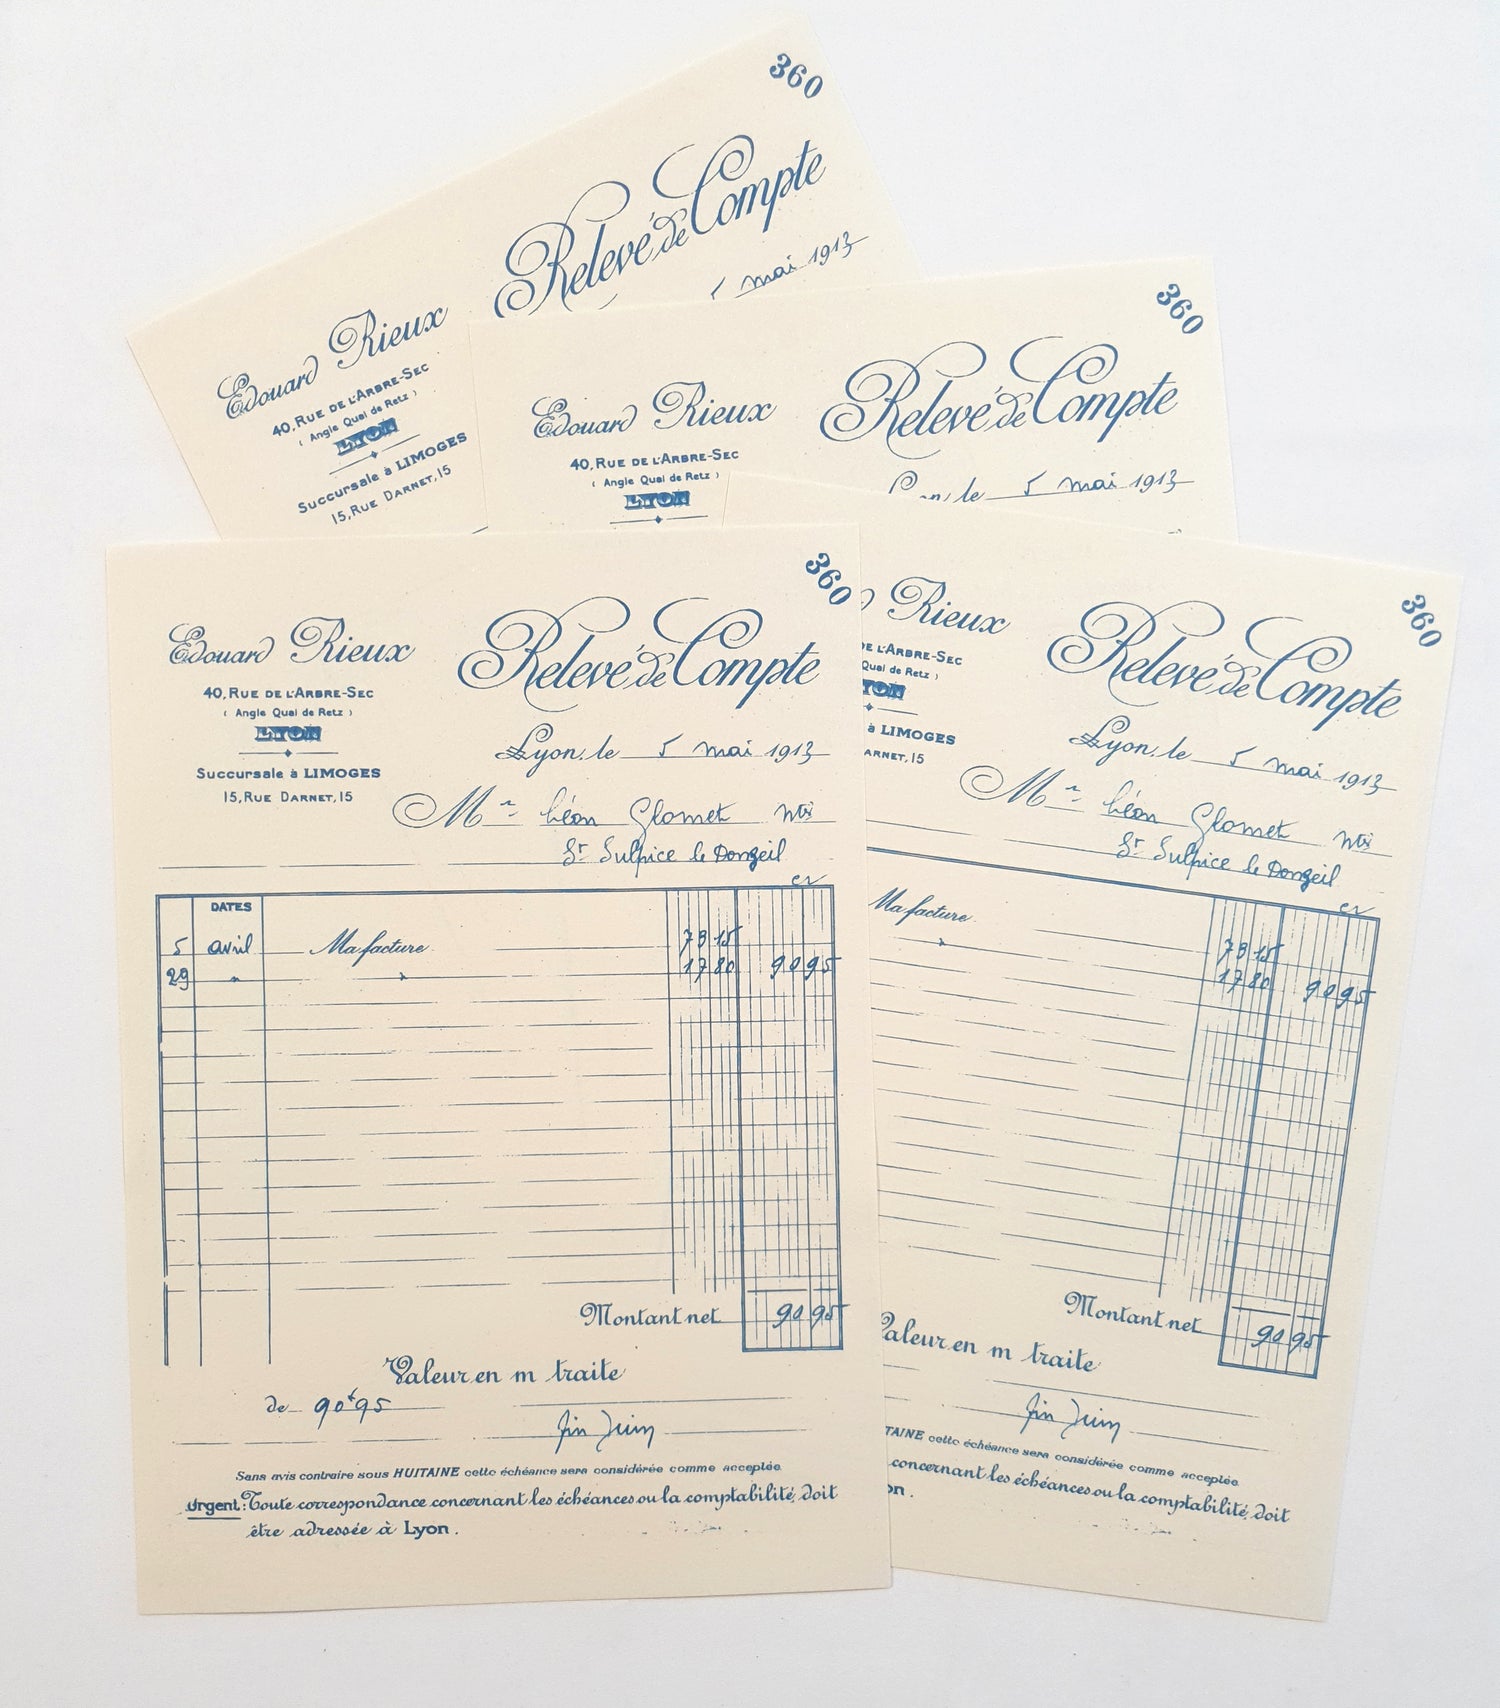 360
Relevé de Compte
5 mai 1913
Edouard Rieux
40, RUE DE L'ARBRE-SEC
( Angle Quai de Retz )
LYON
Succursale à LIMOGES
15, RUE DARNET, 15
360
Relevé de Compte
Edouard Rieux
40, RUE DE L'ARBRE-SEC
( Angle Quai de Retz )
LYON
le 5 mai 1913
360
Edouard Rieux
Relevé de Compte
40, RUE DE L'ARBRE-SEC
( Angle Quai de Retz )
LYON
Lyon, le 5 mai 1913
Succursale à LIMOGES
15, RUE DARNET, 15
Mr Léon Glomet
St Sulpice le Donzeil
cr
DATES
5 avril Ma facture 73 15
29 " " 17 80 90 95
Montant net 90 95
Valeur en m traite
de 90f95
fin Juin
Sans avis contraire sous HUITAINE cette échéance sera considérée comme acceptée
Urgent: Toute correspondance concernant les échéances ou la comptabilité, doit
être adressée à Lyon.
360
Rieux
Relevé de Compte
DE L'ARBRE-SEC
Quai de Retz )
YON
Lyon, le 5 mai 1913
à LIMOGES
ARNET, 15
Mr Léon Glomet
St Sulpice le Donzeil
cr
Ma facture 73 15
" 17 80 90 95
Montant net 90 95
Valeur en m traite
fin Juin
TAINE cette échéance sera considérée comme acceptée
concernant les échéances ou la comptabilité, doit
on.